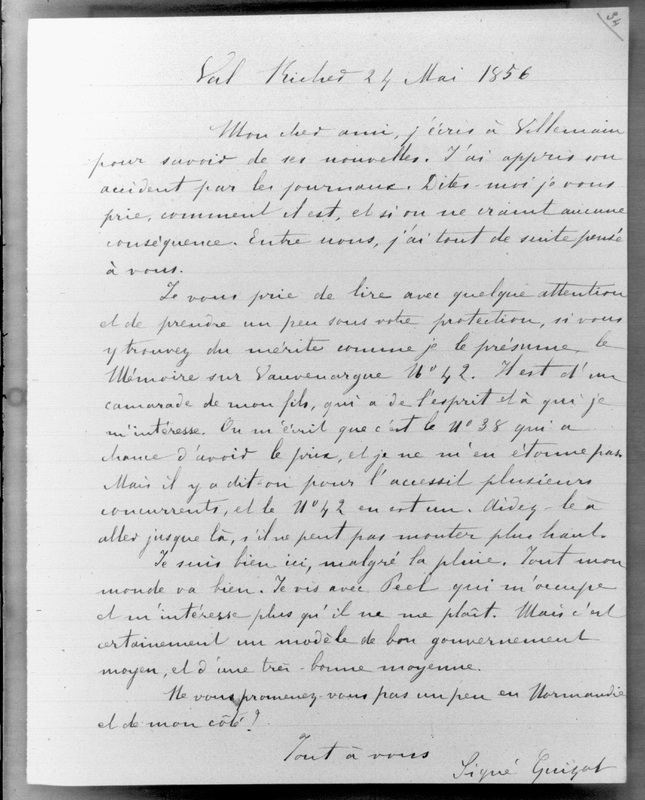 34
Val Richer 24 Mai 1856
Mon cher ami, j'écris à Villemain
pour savoir de ses nouvelles. J'ai appris son
accident par les journaux. Dites-moi je vous
prie, comment il est, et si on ne craint aucune
conséquence. Entre nous, j'ai tout de suite pensé
à vous.
Je vous prie de lire avec quelque attention
et de prendre un peu sous votre protection, si vous
y trouvez du mérite comme je le présume, le
Mémoire sur Vauvenargue No 42. Il est d'un
camarade de mon fils, qui a de l'esprit et à qui je
m'intéresse. On m'écrit que c'est le No 38 qui a
chance d'avoir le prix, et je ne m'en étonne pas.
Mais il y a dit-on pour l'accessit plusieurs
concurrents, et le No 42 en est un. Aidez-le à
aller jusque là, s'il ne peut pas monter plus haut.
Je suis bien ici, malgré la pluie. Tout mon
monde va bien. Je vis avec Peel qui m'occupe
et m'intéresse plus qu'il ne me plaît. Mais c'est
certainement un modèle de bon gouvernement
moyen, et d'une très-bonne moyenne.
Ne vous promenez-vous pas un peu en Normandie
et de mon côté?
Tout à vous
Signé Guizot